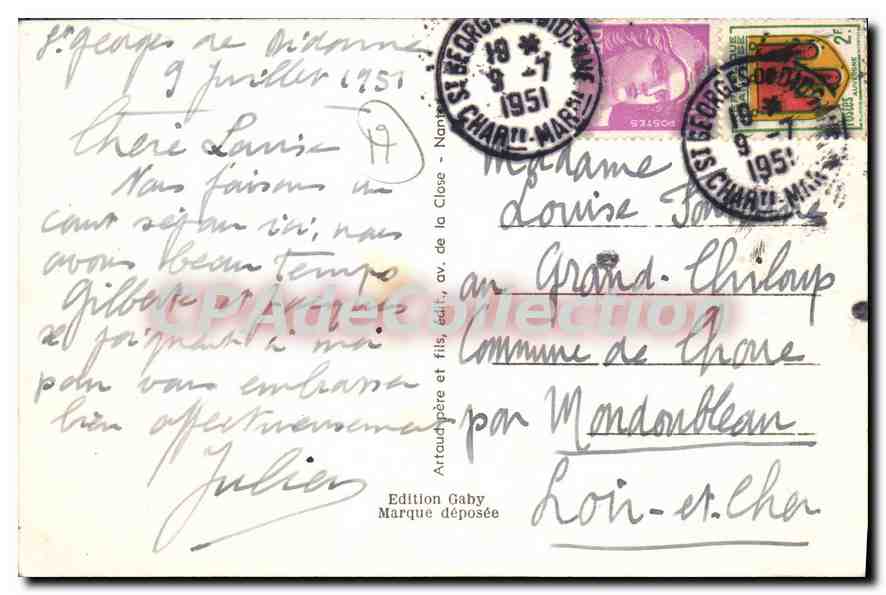 St Georges de Didonne
9 Juillet 1951
Chère Louise
Nous faisons un
court séjour ici, nous
avons beau temps
Gilberte et Jacques
se joignent à moi
pour vous embrasser
bien affectueusement
Julien
Edition Gaby
Marque déposée
Artaud père et fils, édit., av. de la Close - Nantes
ST GEORGES-DE-DIDONNE
19 *
9 -7
1951
CHARte-MARme
POSTES
2F
POSTES AUVERGNE
ST GEORGES-DE-DIDONNE
19 *
9 -7
1951
CHARte-MARme
Madame
Louise
au Grand-Chiloup
Commune de Choue
par Mondoubleau
Loir-et-Cher
CPAdeCollection